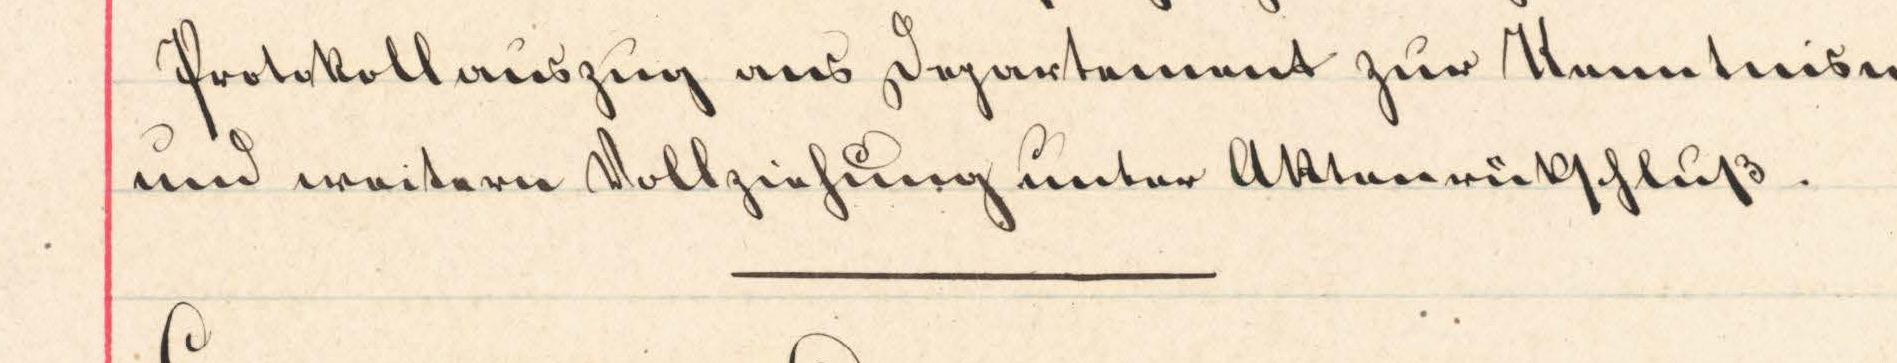 Protokollauszug ans Departement zur Kenntnisn
und weitern Vollziehung unter Aktenrükschluß.